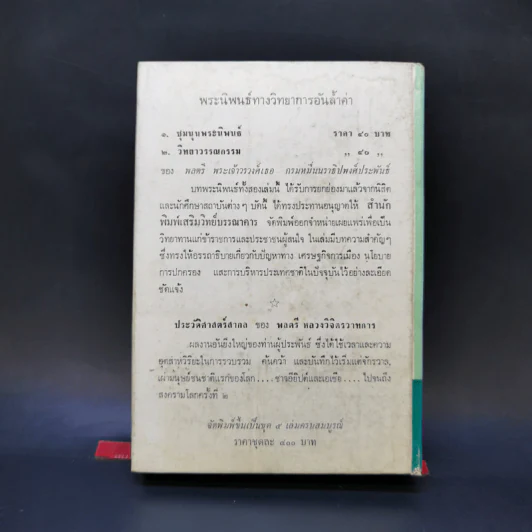 พระนิพนธ์ทางวิทยาการอันล้ำค่า
๑. ชุมนุมพระนิพนธ์ ราคา ๔๐ บาท
๒. วิทยาวรรณกรรม ,, ๔๐ ,,
ของ พลตรี พระเจ้าวรวงศ์เธอ กรมหมื่นนราธิปพงศ์ประพันธ์
บทพระนิพนธ์ทั้งสองเล่มนี้ ได้รับการยกย่องมาแล้วจากนิสิต
และนักศึกษาสถาบันต่างๆ บัดนี้ ได้ทรงประทานอนุญาตให้ สำนัก
พิมพ์เสริมวิทย์บรรณาคาร จัดพิมพ์ออกจำหน่ายเผยแพร่เพื่อเป็น
วิทยาทานแก่ข้าราชการและประชาชนผู้สนใจ ในเล่มมีบทความสำคัญๆ
ซึ่งทรงให้อรรถาธิบายเกี่ยวกับปัญหาทาง เศรษฐกิจการเมือง นโยบาย
การปกครอง และการบริหารประเทศชาติในปัจจุบันไว้อย่างละเอียด
ชัดแจ้ง
ประวัติศาสตร์สากล ของ พลตรี หลวงวิจิตรวาทการ
ผลงานอันยิ่งใหญ่ของท่านผู้ประพันธ์ ซึ่งได้ใช้เวลาและความ
อุตส่าห์วิริยะในการรวบรวม ค้นคว้า และบันทึกไว้เริ่มแต่จักรวาล,
เผ่ามนุษย์ชนชาติแรกของโลก....ชาวอียิปต์และเอเชีย....ไปจนถึง
สงครามโลกครั้งที่ ๒
จัดพิมพ์ขึ้นเป็นชุด ๙ เล่มครบสมบูรณ์
ราคาชุดละ ๔๐๐ บาท